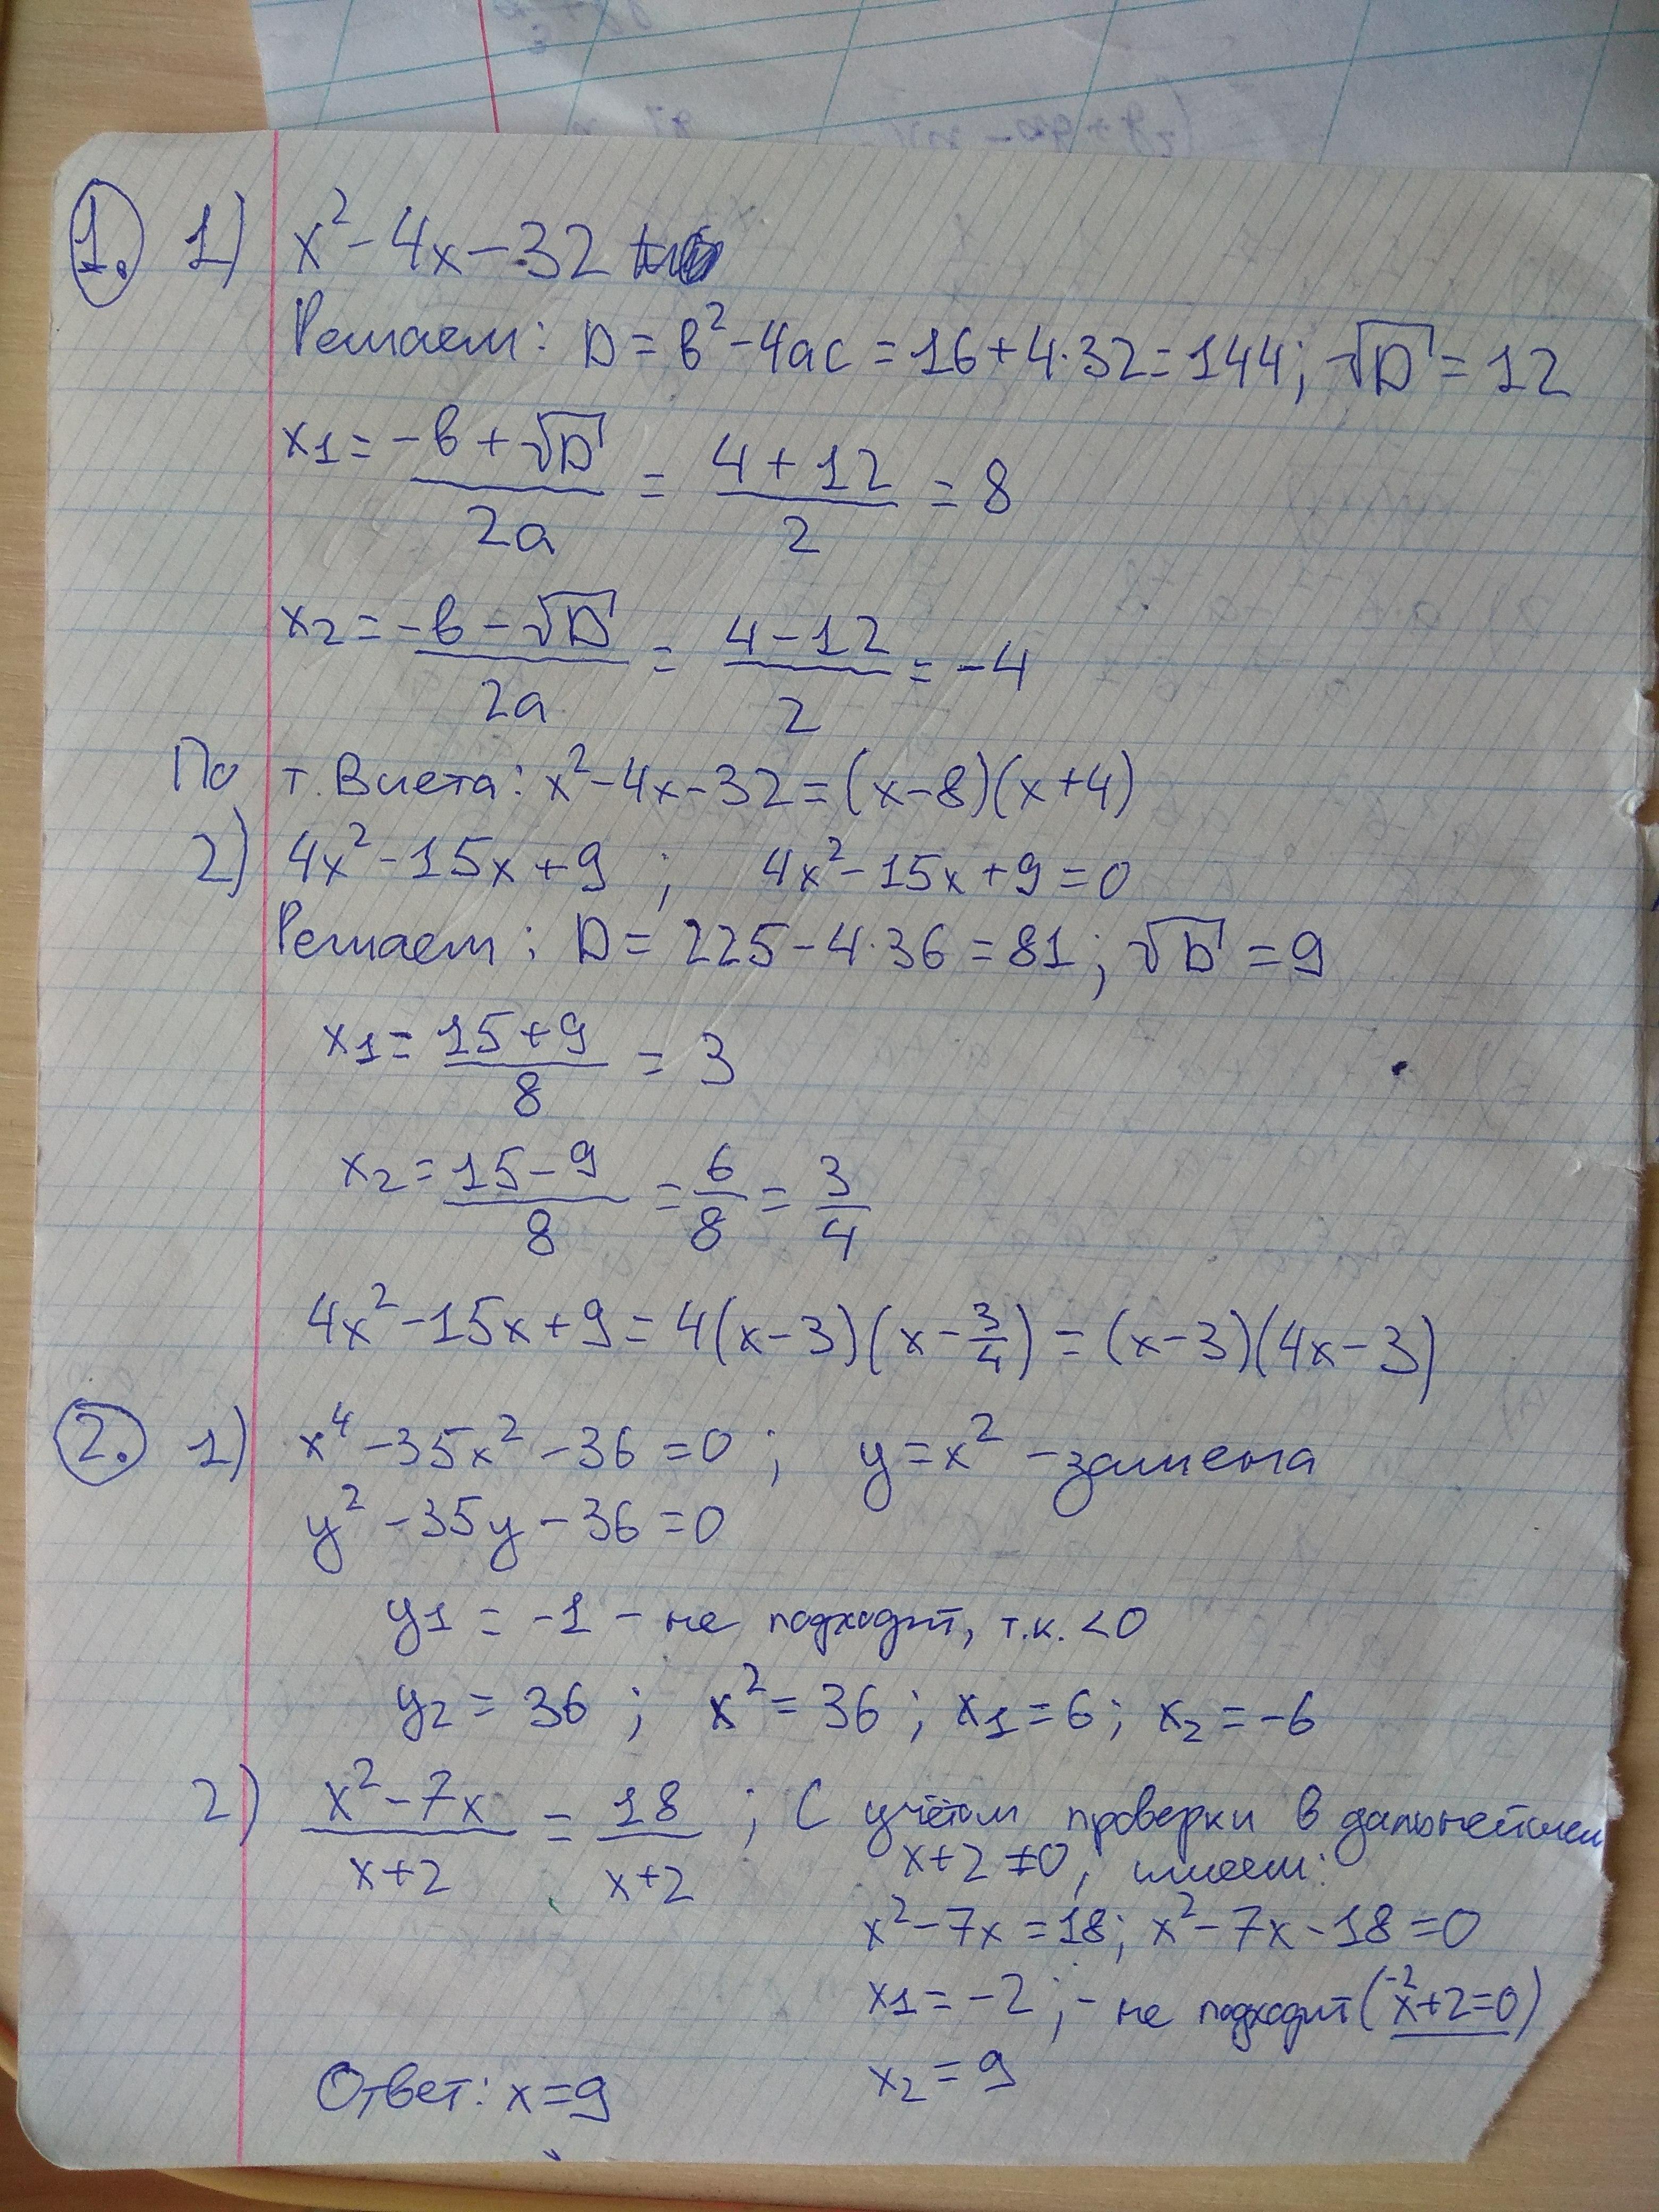 1. 1) x² - 4x - 32
Решаем: D = b² - 4ac = 16 + 4·32 = 144; √D = 12
x1 = (-b + √D)/2a = (4 + 12)/2 = 8
x2 = (-b - √D)/2a = (4 - 12)/2 = -4
По т. Виета: x² - 4x - 32 = (x - 8)(x + 4)
2) 4x² - 15x + 9 ; 4x² - 15x + 9 = 0
Решаем: D = 225 - 4·36 = 81; √D = 9
x1 = (15 + 9)/8 = 3
x2 = (15 - 9)/8 = 6/8 = 3/4
4x² - 15x + 9 = 4(x - 3)(x - 3/4) = (x - 3)(4x - 3)
2. 1) x⁴ - 35x² - 36 = 0 ; y = x² - замена
y² - 35y - 36 = 0
y1 = -1 - не подходит, т.к. < 0
y2 = 36 ; x² = 36 ; x1 = 6 ; x2 = -6
2) (x² - 7x)/(x + 2) = 18/(x + 2) ; С учётом проверки в дальнейшем
x + 2 ≠ 0, имеем:
x² - 7x = 18; x² - 7x - 18 = 0
x1 = -2 ; - не подходит (-2 x + 2 = 0)
x2 = 9
Ответ: x = 9